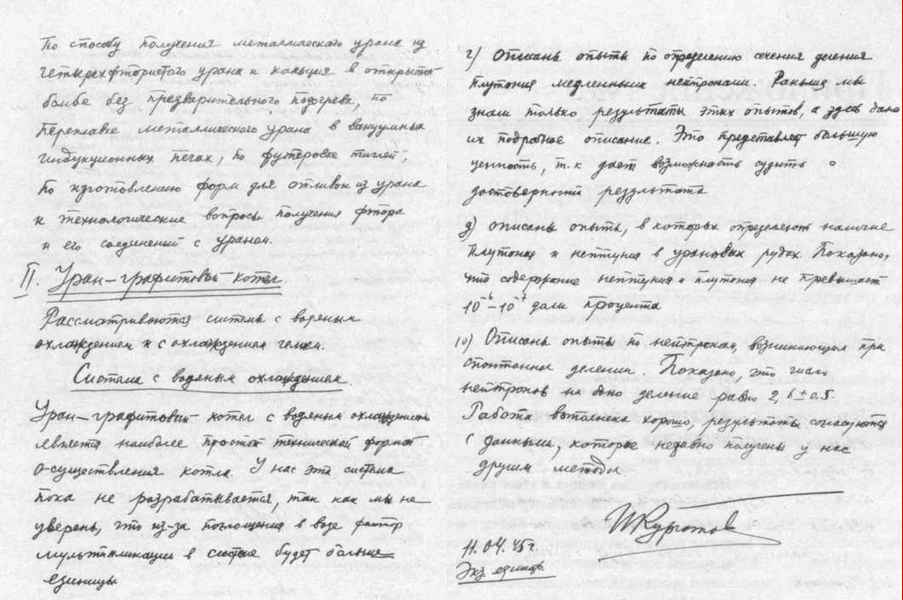 По способу получения металлического урана из
четырехфтористого урана и кальция в открытой
бомбе без предварительного подогрева, по
переплавке металлического урана в вакуумных
индукционных печах, по футеровке тиглей,
по изготовлению форм для отливок из урана
и технологические вопросы получения фтора
и его соединений с ураном.
II. Уран-графитовый котел
Рассматриваются системы с водяным
охлаждением и с охлаждением гелием.
Система с водяным охлаждением.
Уран-графитовый котел с водяным охлаждением
является наиболее простой технической формой
осуществления котла. У нас эта система
пока не разрабатывается, так как мы не
уверены, что из-за поглощения в воде фактор
мультипликации в системе будет больше
единицы
г) Описаны опыты по определению сечения деления
плутония медленными нейтронами. Раньше мы
знали только результаты этих опытов, а здесь дано
их подробное описание. Это представляет большую
ценность, т.к дает возможность судить о
достоверности результата
д) Описаны опыты, в которых определяют наличие
плутония и нептуния в урановых рудах. Показано,
что содержание нептуния и плутония не превышает
10⁻⁶–10⁻⁷ доли процента
10) Описаны опыты по нейтронам, возникающим при
спонтанном делении. Показано, что число
нейтронов на одно деление равно 2,6±0.5.
Работа выполнена хорошо, результаты согласуются
с данными, которые недавно получены у нас
другим методом
ИКурчатов
11.04.45г
Экз единств